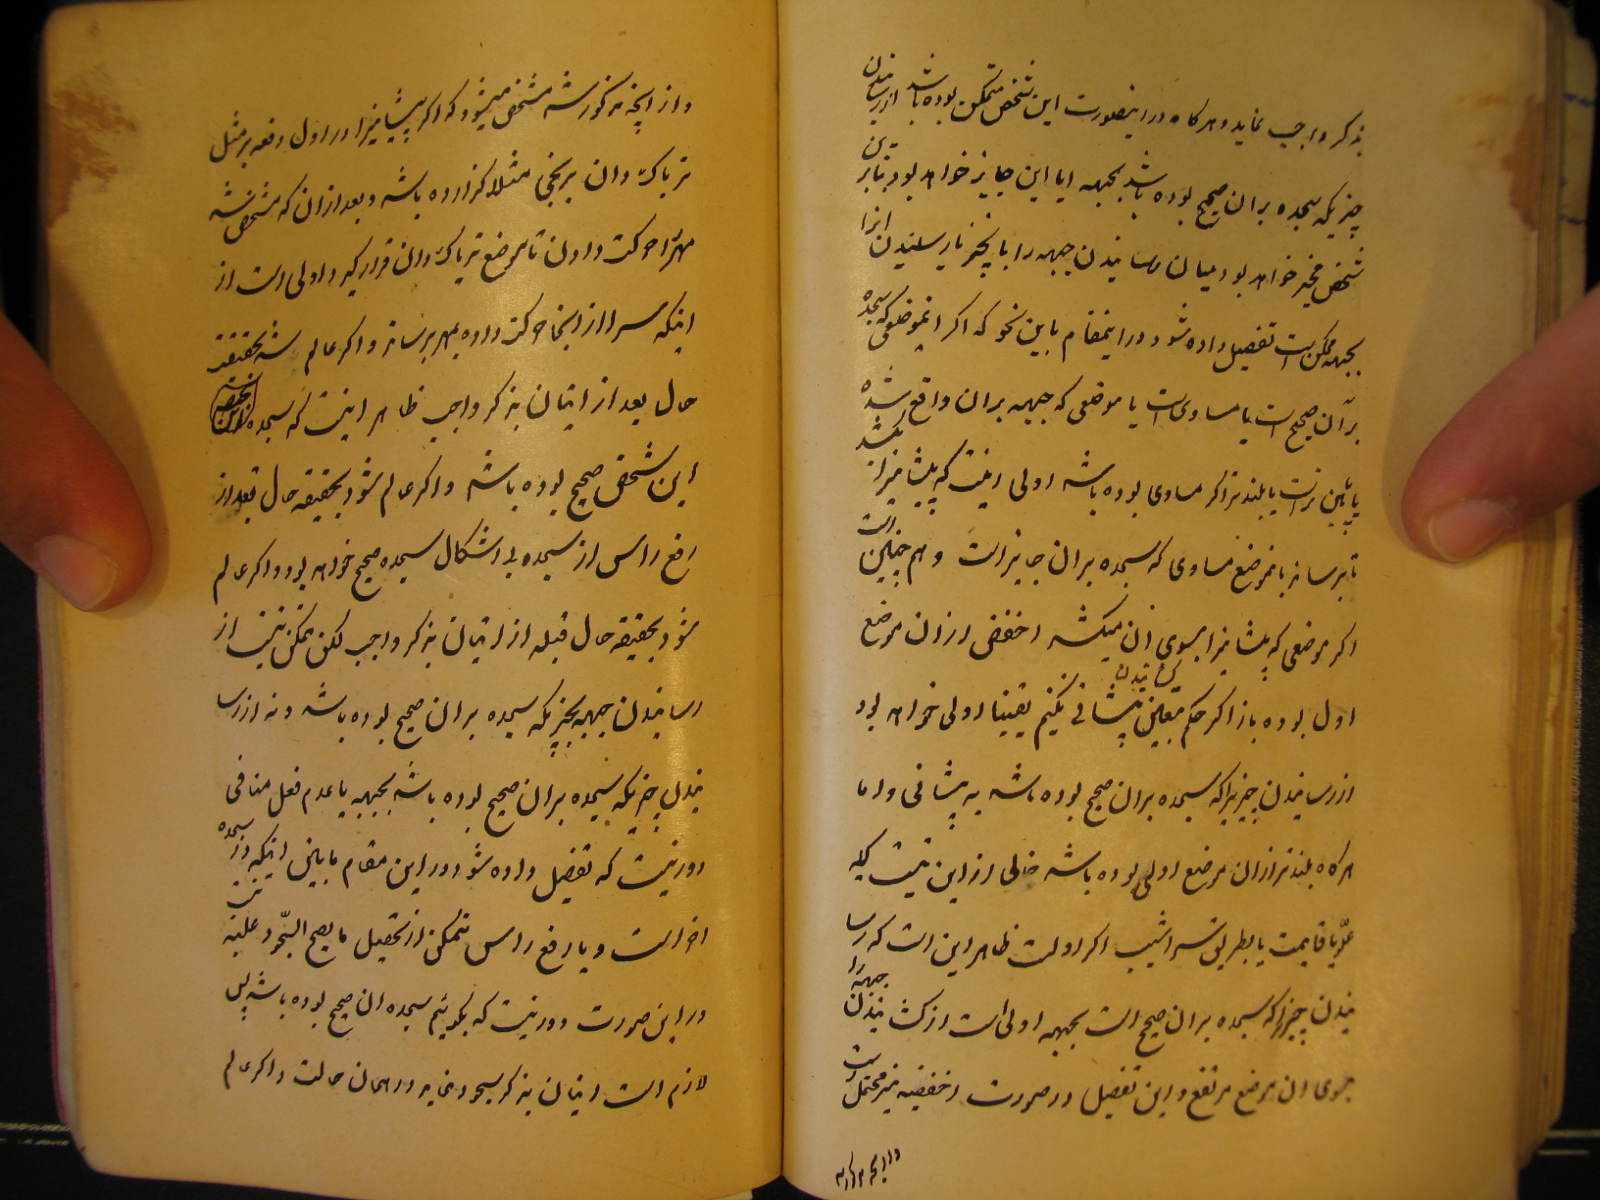 بذکر واجب نماید و هرکاه در اینصورت این شخص متمکن بوده باشد از رسانیدن
چیزیکه سجده بر ان صحیح بوده باشد بجبهه ایا این جایز خواهد بود بنابرین
شخص مخیر خواهد بود میان رسانیدن جبهه را با نچیز یا رسانیدن انرا
بجبهه ممکن است تفصیل داده شود در اینمقام باین نحو که اکر انموضعی که سجده
بر آن صحیح است یا مساویست با موضعی که جبهه بر ان واقع شده
یا پائین تر است یا بلندتر اکر مساوی بوده باشد اولی اینست که پیشانیرا بکشد
تا برساند بانموضع مساوی که سجده بر ان جایز است و هم چنین است
اکر موضعی که پیشانیرا بسوی ان میکشد اخفض از ان موضع
اول بوده باز اکر حکم بتعیین کشانیدن پیشانی نکنیم یقینا اولی خواهد بود
از رسانیدن چیزیرا که سجده بر ان صحیح بوده باشد به پیشانی و اما
هرکاه بلندتر از ان موضع اولی بوده باشد خالی از این نیست که
علو یا قایمست یا بطریق سراشیب اکر اولست ظاهر این است که رسا
نیدن چیزیرا که سجده بر ان صحیح است بجبهه اولی است از کشانیدن جبهه را
بسوی ان موضع مرتفع و این تفصیل در صورت اخفضیه نیز محتمل است
و از انچه مذکور شد مشخص میشود که اکر پیشانیرا در اول دفعه بر مثل
تریاک دان برنجی مثلا کزارده باشد و بعد از ان که مشخص شد
مهر را حرکت دادن تا بموضع تریاک دان قرار کیرد اولی است از
اینکه سر را از اینجا حرکت داده بمهر برساند و اکر عالم شد بحقیقت
حال بعد از اتیان بذکر واجب ظاهر اینست که سجده
این شخص صحیح بوده باشد و اکر عالم شود بحقیقه حال بعد از
رفع راس از سجده بی اشکال سجده صحیح خواهد بود و اکر عالم
شود بحقیقه حال قبل از اتیان بذکر واجب لکن متمکن نیست از
رسانیدن جبهه بچیزیکه سجده بر ان صحیح بوده باشد و نه از رسا
نیدن چیزیکه سجده بر ان صحیح بوده باشد بجبهه با عدم فعل منافی
دور نیست که تفصیل داده شود در این مقام مابین اینکه در سجده
اخر است و با رفع راس متمکن از تحصیل ما یصح السجود علیه نیست
در این صورت دور نیست که بکوئیم سجده ان صحیح بوده باشد پس
لازم است اتیان بذکر سجود نماید در همان حالت و اکر عالم